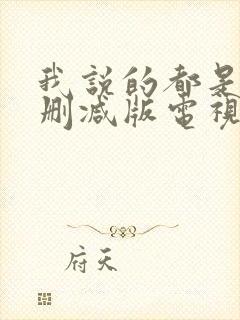 我説的都是
删减版電視
府天